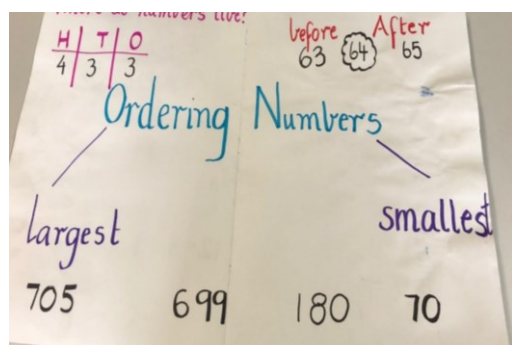 where do numbers live?
H T O
4 3 3
before After
63 64 65
Ordering Numbers
largest smallest
705 699 180 70